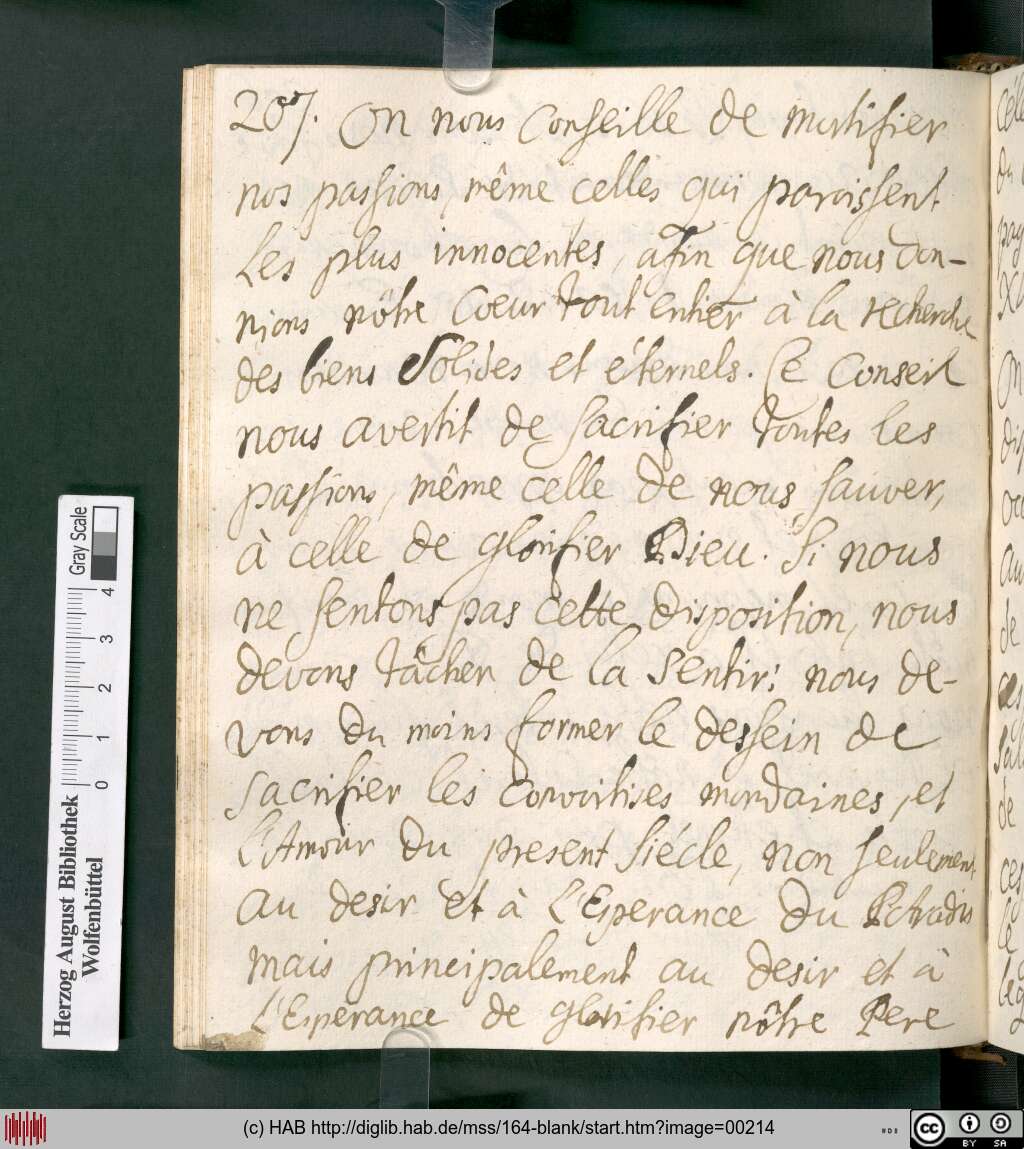 207. On nous conseille de mortifier
nos passions, même celles qui paroissent
les plus innocentes, afin que nous don-
nions nôtre Cœur tout entier à la recherche
des biens Solides et éternels. Ce Conseil
nous avertit de sacrifier toutes les
passions, même celle de nous sauver,
à celle de glorifier Dieu. Si nous
ne sentons pas cette disposition, nous
devons tâcher de la sentir; nous de-
vons du moins former le dessein de
sacrifier les convoitises mondaines, et
l'Amour du present siécle, non seulement
au desir et à l'Esperance du Paradis
mais principalement au desir et à
l'Esperance de glorifier nôtre Pere
Herzog August Bibliothek
Wolfenbüttel
Gray Scale
0 1 2 3 4
(c) HAB http://diglib.hab.de/mss/164-blank/start.htm?image=00214
cc BY SA